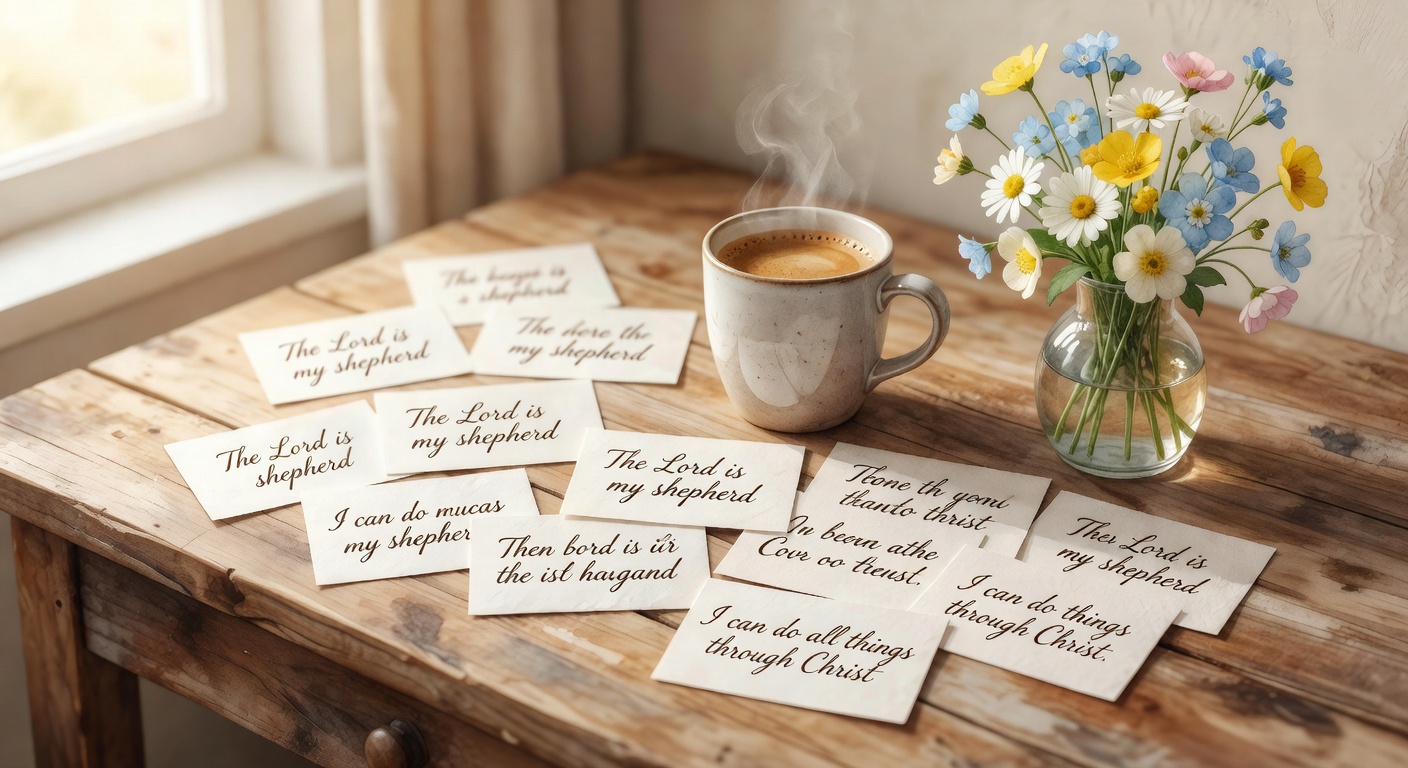 The
is
a shepherd
The Lord is
my shepherd
The dere the
my shepherd
The Lord is
my shepherd
The Lord is
shepherd
The Lord is
my shepherd
I can do mucas
my shepher
Then bord is
the ist haugand
Tkone th yoml
thanto thrist
In beern athe
Covr oo theust.
Thev Lord is
my shepherd
I can do things
through Christ.
I can do all things
through Christ